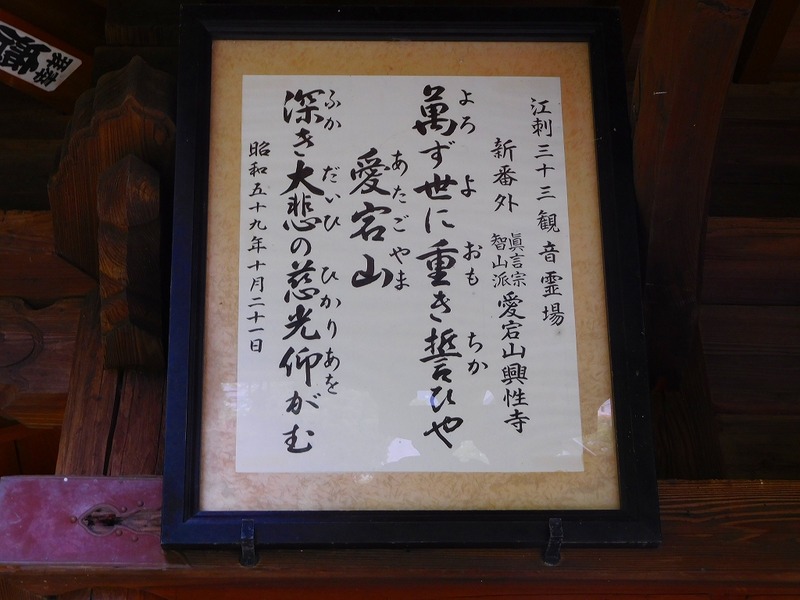 江刺三十三観音霊場
新番外 眞言宗智山派 愛宕山興性寺
よろ よ おも ちか
萬ず世に重き誓ひや
あたごやま
愛宕山
ふか だいひ ひかりあを
深き大悲の慈光仰がむ
昭和五十九年十月二十一日